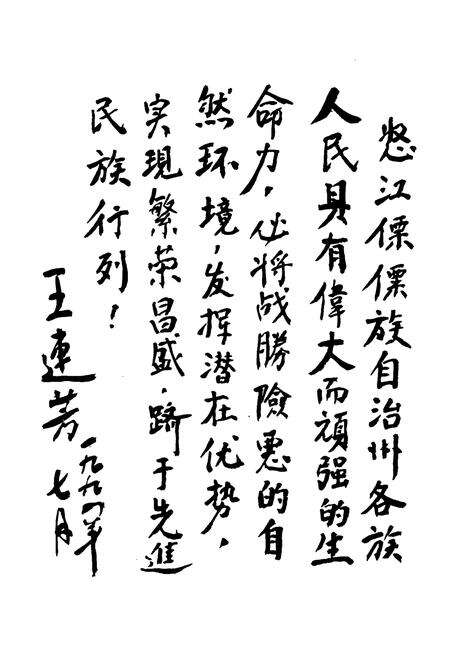 怒江傈僳族自治州各族
人民具有偉大而頑强的生
命力，必将战勝險惡的自
然环境，发挥潜在优势，
实現繁荣昌盛，跻于先進
民族行列！
王連芳
一九九年
七月